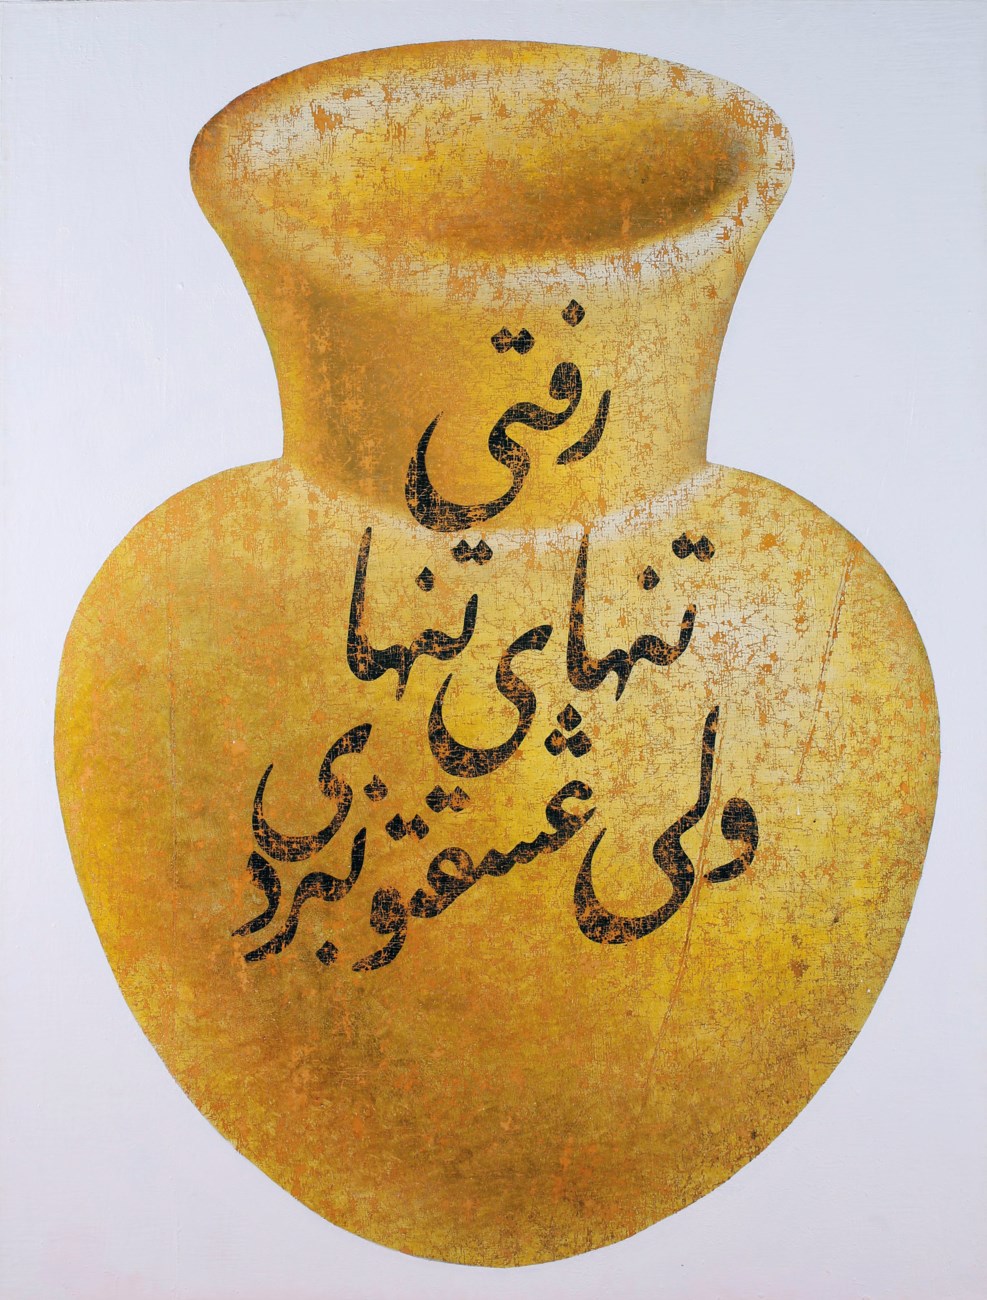 رفتی
تنهای تنها
ولی عشقو نبردی